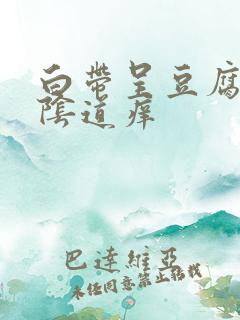 白帶呈豆腐
陰道痒
巴達維亞
未經同意禁止轉載